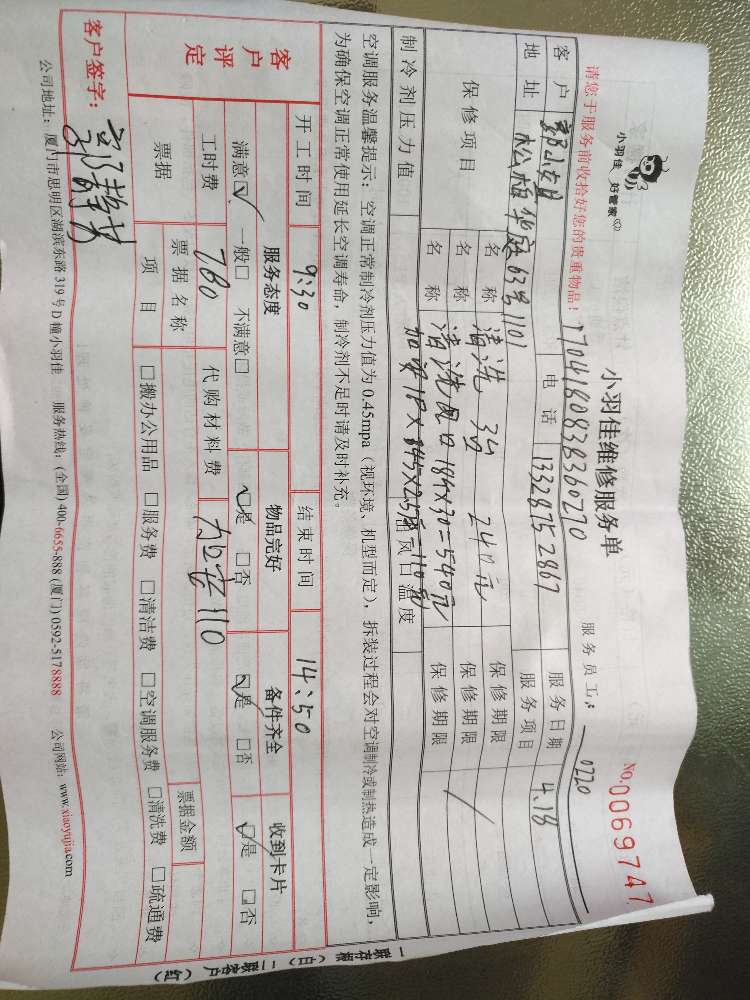 小羽佳 好管家
小羽佳维修服务单
No. 0069747
请您于服务前收拾好您的贵重物品！
1704180838360270
服务员工：
0220
客户
电话 13328752867
服务日期 4.18
地址 松柏华庭63号1101
服务项目
保修项目
名称 清洗 3台 240元
保修期限
名称 清洗风口 18个×30=540元
保修期限
名称
保修期限
制冷剂压力值
出风口温度
空调服务温馨提示：空调正常制冷剂压力值为0.45mpa（视环境、机型而定），拆装过程会对空调制冷或制热造成一定影响，
为确保空调正常使用延长空调寿命，制冷剂不足时请及时补充。
客户评定
开工时间 9:30 结束时间 14:50
服务态度 物品完好 备件齐全 收到卡片
满意☑ 一般□ 不满意□ ☑是 □否 ☑是 □否 ☑是 □否
工时费 780 代购材料费 110
票据 票据名称 票据金额
项目 □搬办公用品 □服务费 □清洁费 □空调服务费 □清洗费 □疏通费
客户签字：
公司地址：厦门市思明区湖滨东路319号D幢小羽佳 服务热线：(全国) 400-6655-888 (厦门) 0592-5178888 公司网站：www.xiaoyujia.com
一联存根（白） 二联客户（红）